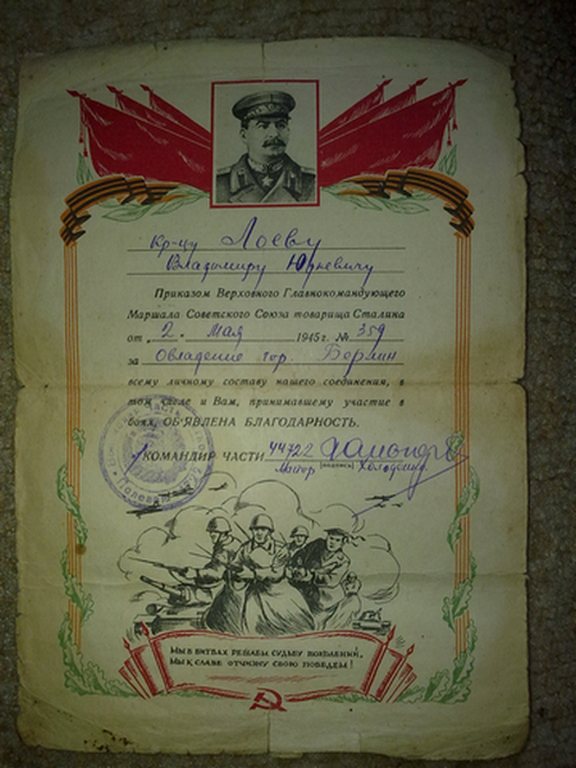 Кр-цу Лоеву
Владимиру Юрьевичу
Приказом Верховного Главнокомандующего
Маршала Советского Союза товарища Сталина
от „2" Мая 1945 г. № 359
за Овладение гор. Берлин
всему личному составу нашего соединения, в
том числе и Вам, принимавшему участие в
боях, ОБ'ЯВЛЕНА БЛАГОДАРНОСТЬ.
КОМАНДИР ЧАСТИ 44722
Майор (подпись)
Полевая
МЫ В БИТВАХ РЕШАЕМ СУДЬБУ ПОКОЛЕНИЙ,
МЫ К СЛАВЕ ОТЧИЗНУ СВОЮ ПОВЕДЕМ!